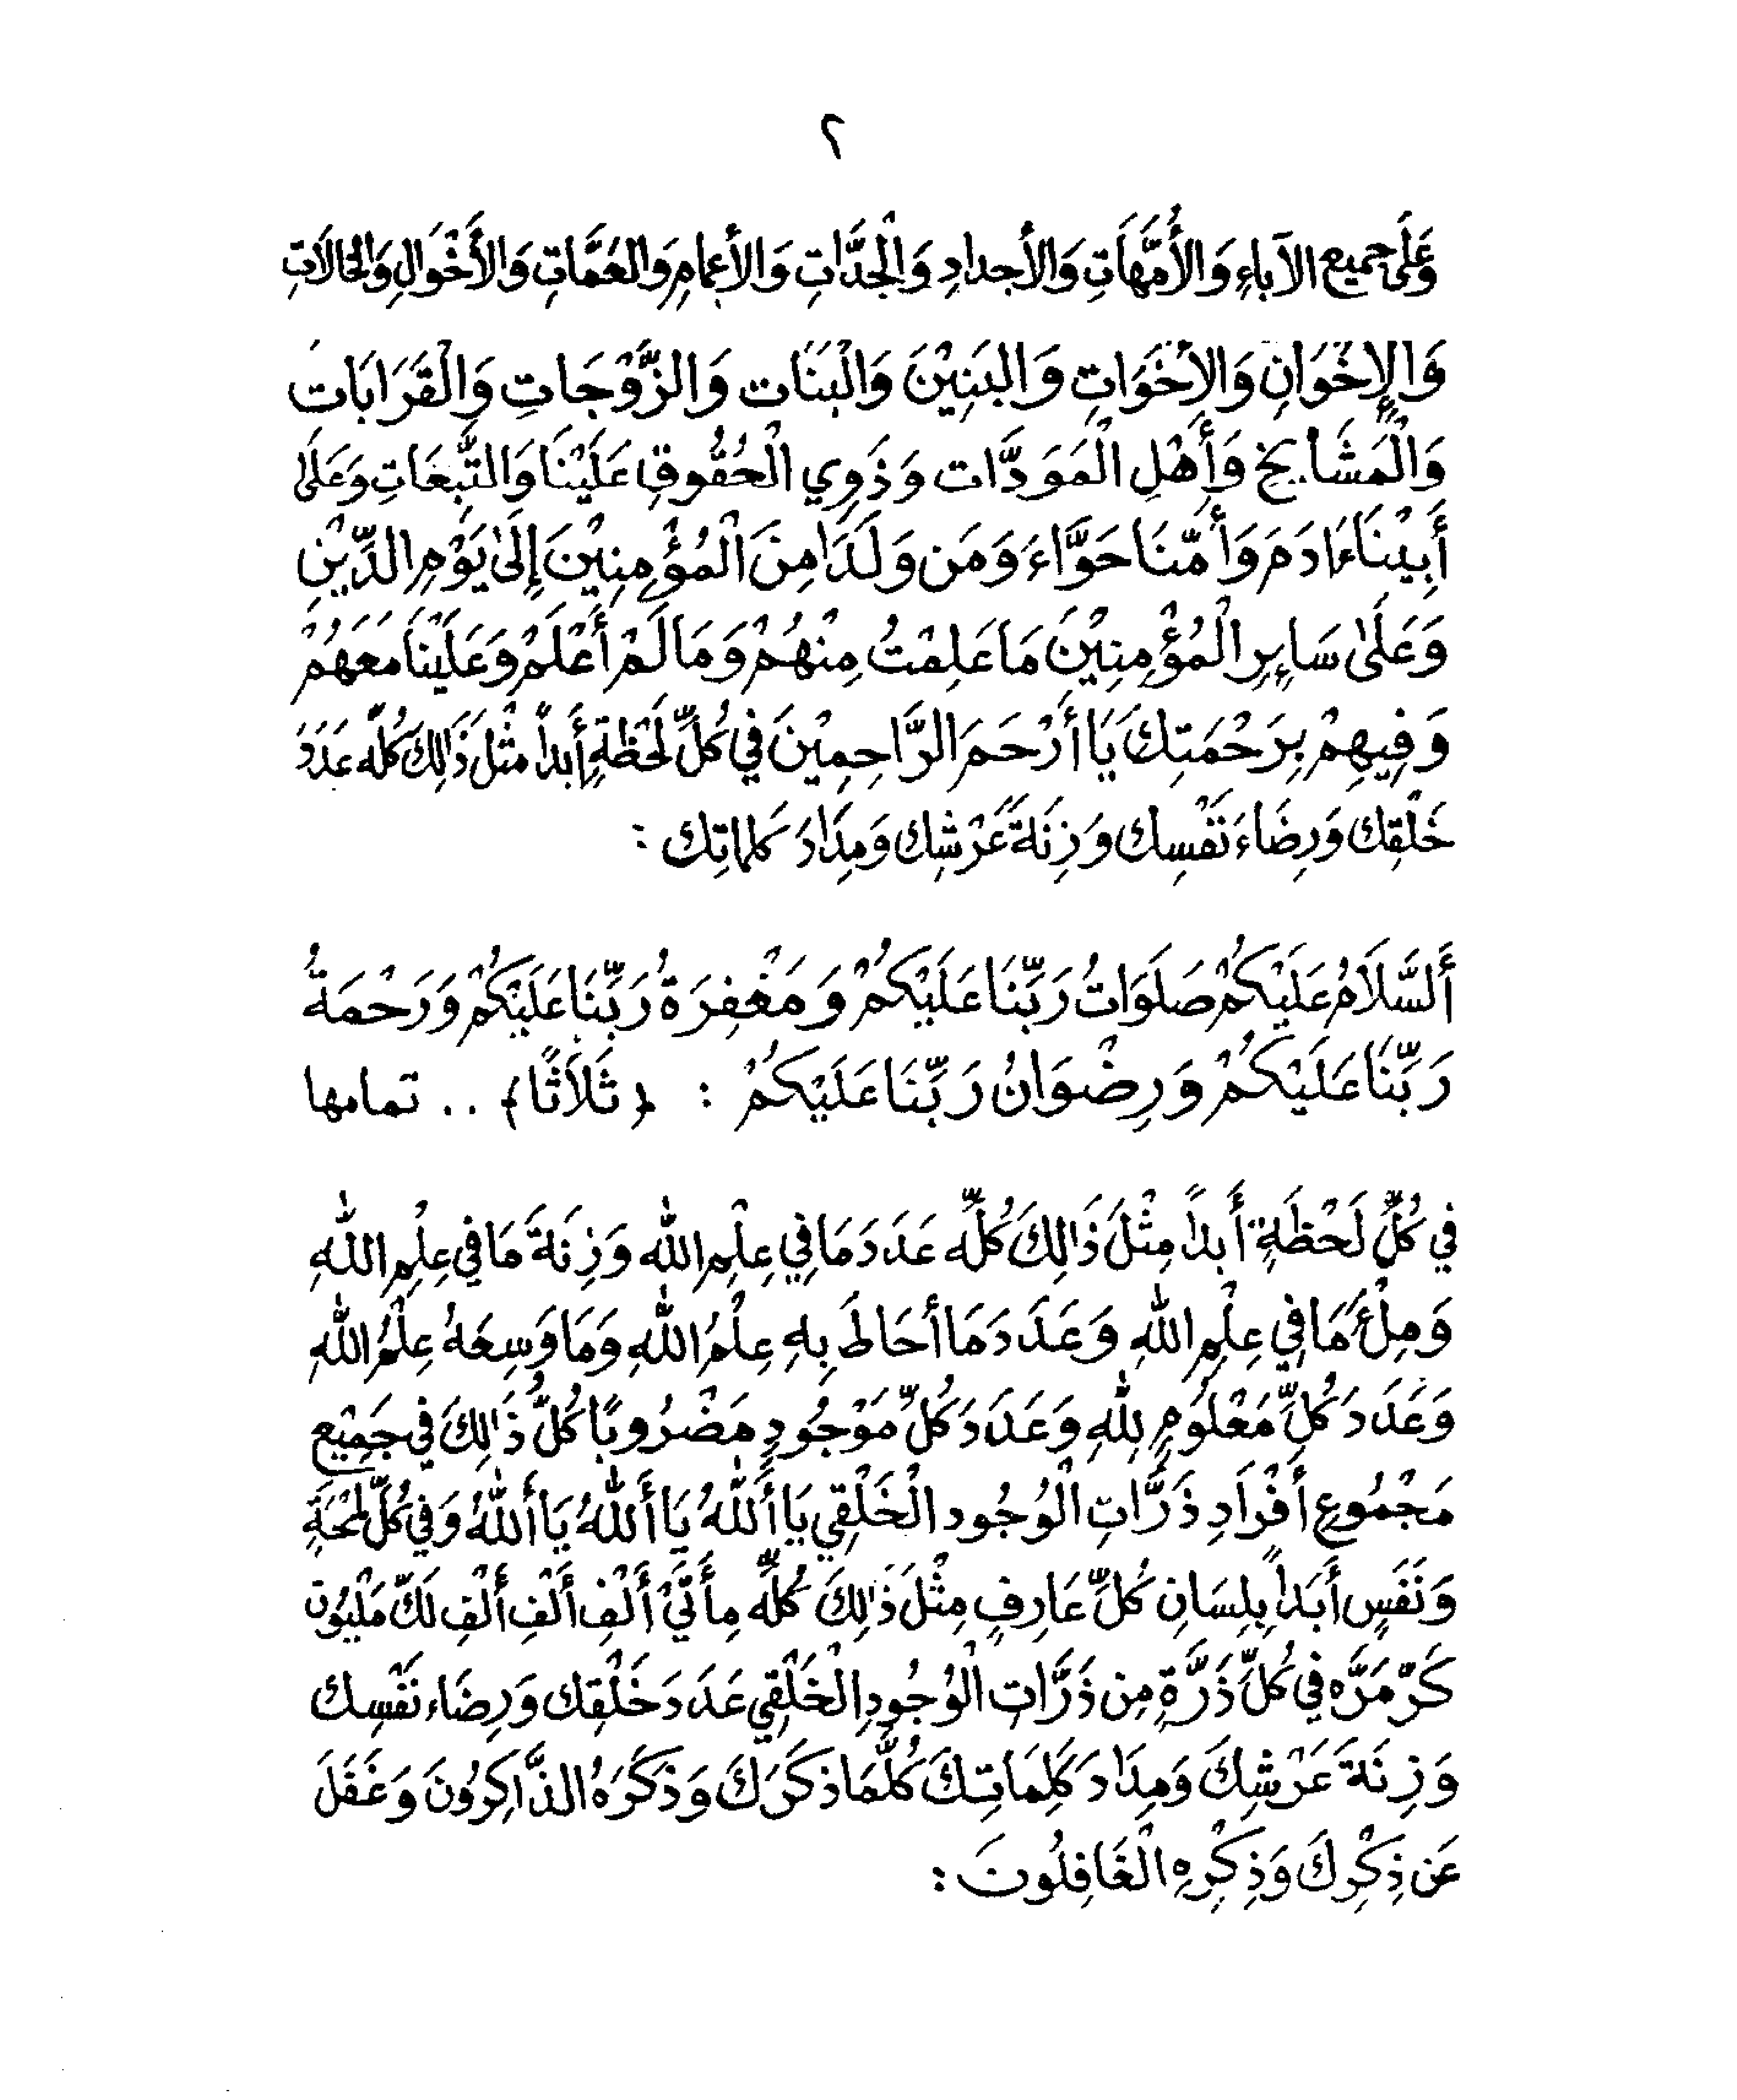 ٢
وَعَلَى جميع الآباءِ وَالأُمَّهَاتِ وَالأجدادِ وَالْجَدَّاتِ وَالأعمامِ وَالعَمَّاتِ وَالأَخْوَالِ وَالخالاَتِ
وَالإِخْوَانِ وَالأخَوَاتِ وَالبَنِيْنَ وَالْبَنَات وَالزَّوْجَاتِ وَالْقَرَابَات
وَالْمَشَايخ وَأَهْلِ الْمَوَدَّات وَذَوِي الْحُقُوقِ عَلَيْنَا وَالتَّبِعَاتِ وَعَلَىٰ
أَبِيْنَا ءَادَمَ وَأُمِّنَا حَوَّاءَ وَمَن وَلَدَا مِنَ الْمُؤْمِنِيْنَ إِلَىٰ يَوْمِ الدِّيْنِ
وَعَلَىٰ سَايِرِ الْمُؤْمِنِيْنَ مَا عَلِمْتُ مِنْهُمْ وَمَا لَمْ أَعْلَمْ وَعَلَيْنَا مَعَهُمْ
وَفِيهِمْ بِرَحْمَتِكَ يَا أَرْحَمَ الرَّاحِمِيْنَ فِي كُلِّ لَحْظَةٍ أَبداً مِثْلَ ذَالِكَ كُلِّه عَدَدَ
خَلْقِك وَرِضَاءَ نَفْسِك وَزِنَةَ عَرْشِك وَمِدَادَ كلماتِك :
أَلسَّلاَمُ عَلَيْكُمْ صَلَوَاتُ رَبِّنَا عَلَيْكُمْ وَمَغْفِرَةُ رَبِّنَا عَلَيْكُمْ وَرَحْمَةُ
رَبِّنَا عَلَيْكُمْ وَرِضْوَانُ رَبِّنَا عَلَيْكُمْ : ﴿ثَلاَثًا﴾ .. تمامها
فِي كُلِّ لَحْظَةٍ أَبداً مِثْلَ ذَالِكَ كُلِّه عَدَدَ مَا فِي عِلْمِ اللهِ وَزِنَةَ مَا فِي عِلْمِ اللهِ
وَمِلْءَ مَا فِي عِلْمِ اللهِ وَعَدَدَ مَا أحَاطَ بِهِ عِلْمُ اللهِ وَمَا وَسِعَهُ عِلْمُ اللهِ
وَعَدَدَ كُلِّ مَعْلُومٍ لِلهِ وَعَدَدَ كُلِّ مَوْجُودٍ مَضْرُوبًا كُلُّ ذَالِكَ فِي جَمِيْعِ
مَجْمُوعِ أَفْرَادِ ذَرَّاتِ الْوُجُود الْخَلْقِي يَا أَللهُ يَا أَللهُ يَا أَللهُ وَفِي كُلِّ لمْحَةٍ
وَنَفَسٍ أَبَداً بِلِسَانِ كُلِّ عَارِفٍ مِثْلَ ذَالِكَ كُلِّه مِأَتَيْ أَلْفِ أَلْفِ أَلْفِ لَكّ مَلْيُون
كَرّ مَرَّه فِي كُلِّ ذَرَّةٍ مِن ذَرَّاتِ الْوُجُودِ الْخَلْقِي عَدَدَ خَلْقِك وَرِضَاء نَفْسِك
وَزِنَةَ عَرْشِكَ وَمِدَادَ كَلِمَاتِكَ كُلَّمَا ذكَرَكَ وَذَكَرَهُ الذَّاكِرُونَ وَغَفَلَ
عَن ذِكْرِكَ وَذِكْرِهِ الْغَافِلُونَ :